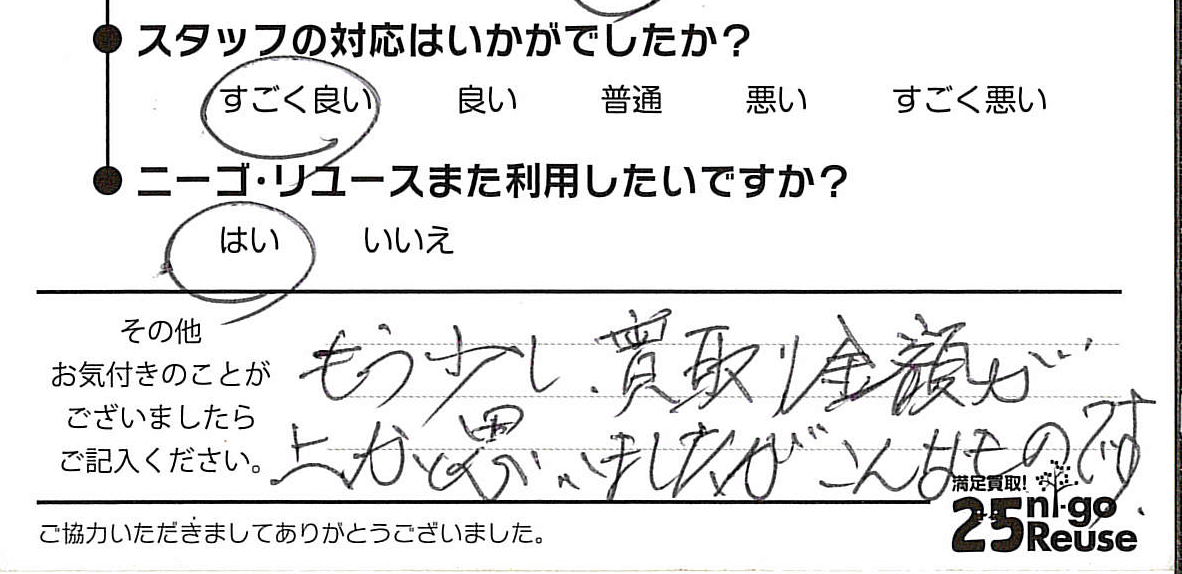 スタッフの対応はいかがでしたか？
すごく良い 良い 普通 悪い すごく悪い
ニーゴ・リユースまた利用したいですか？
はい いいえ
その他
お気付きのことが
ございましたら
ご記入ください。
もう少し、買取り金額が
上かと思いましたがこんなものです
ご協力いただきましてありがとうございました。
満足買取!
25 ni-go
Reuse